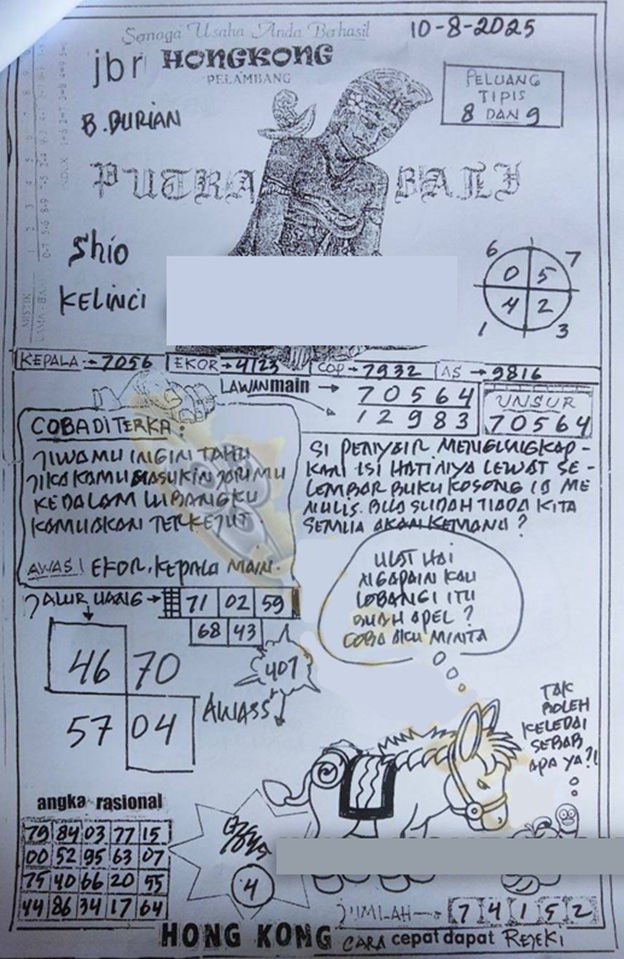 Semoga Usaha Anda Berhasil
10-8-2025
jbr HONGKONG
PELAMBANG
PELUANG
TIPIS
8 DAN 9
B. DURIAN
PUTRA BALI
Shio
KELINCI
6 7
0 5
4 2
1 3
KEPALA → 7056 EKOR → 4123 COP → 7932 AS → 9816
LAWAN main → 70564
12983
UNSUR
70564
COBA DITERKA:
JIWAMU INGIN TAHU
JIKA KAMU MASUKIN JARIMU
KEDALAM LUBANGKU
KAMU AKAN TERKEJUT.
AWAS! EKOR, KEPALA MAIN.
SI PENYAIR MENGUNGKAP-
KAN ISI HATINYA LEWAT SE-
LEMBAR BUKU KOSONG IA ME
NULIS. BILA SUDAH TIADA KITA
SEMUA AKAN KEMANA?
JALUR UANG → 71 02 59
68 43
ULAT HAI
NGAPAIN KAU
LOBANGI ITU
BUAH APEL?
COBA AKU MINTA
46 70
57 04
407
AWASS!
TAK
BOLEH
KELEDAI
SEBAB
APA YA?!
angka rasional
79 84 03 77 15
00 52 95 63 07
75 40 66 20 55
44 86 34 17 64
4
JUMLAH → 7 4 1 5 2
HONG KONG CARA cepat dapat REJEKI